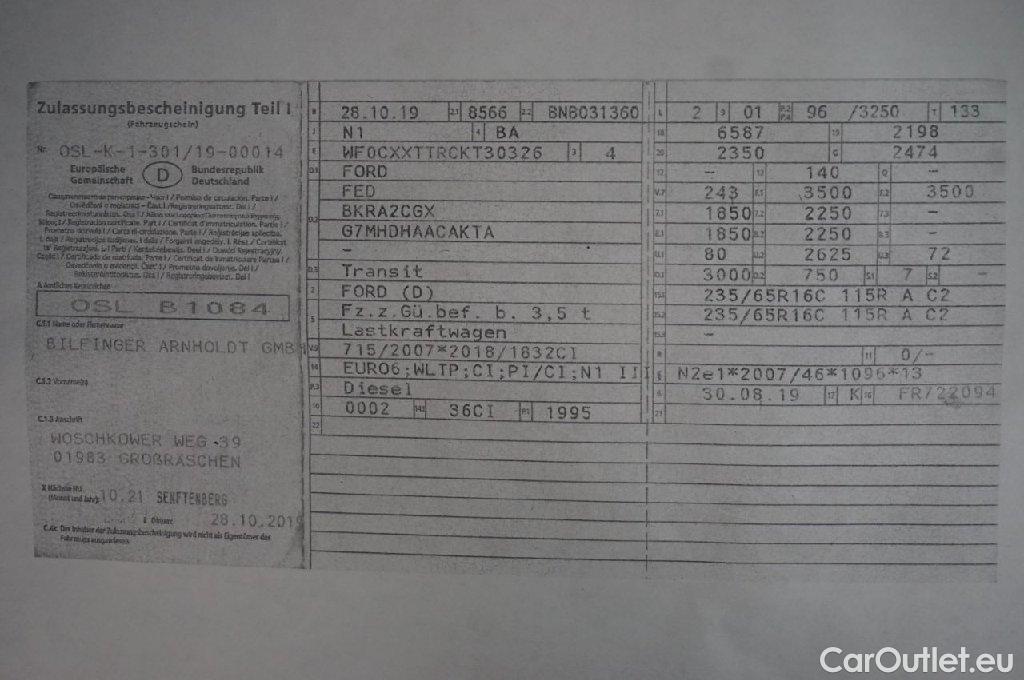 Zulassungsbescheinigung Teil I
(Fahrzeugschein)
Nr. OSL-K-1-301/19-00014
Europäische Gemeinschaft D Bundesrepublik Deutschland
OSL B1084
C.1.1 Name oder Firmenname
BILFINGER ARNHOLDT GMB
C.1.2 Vorname(n)
C.1.3 Anschrift
WOSCHKOWER WEG 39
01983 GROßRÄSCHEN
10.21 SENFTENBERG
28.10.2019
C.4c Der Inhaber der Zulassungsbescheinigung wird nicht als Eigentümer des Fahrzeugs ausgewiesen.
B 28.10.19 2.1 8566 2.2 BNB031360
J N1 4 BA
E WF0CXXTTRCKT30326 3 4
D.1 FORD
FED
D.2 BKRA2CGX
G7MHDHAACAKTA
-
D.3 Transit
2 FORD (D)
5 Fz.z.Gü.bef. b. 3,5 t
Lastkraftwagen
V.9 715/2007*2018/1832CI
14 EURO6;WLTP;CI;PI/CI;N1 III
P.3 Diesel
10 0002 14.1 36CI P.1 1995
22
L 2 9 01 P.2 P.4 96 /3250 T 133
18 6587 19 2198
20 2350 G 2474
12 - 13 140 Q -
V.7 243 F.1 3500 F.2 3500
7.1 1850 7.2 2250 7.3 -
8.1 1850 8.2 2250 8.3 -
U.1 80 U.2 2625 U.3 72
O.1 3000 O.2 750 S.1 7 S.2 -
15.1 235/65R16C 115R A C2
15.2 235/65R16C 115R A C2
15.3 -
R 11 0/-
K N2e1*2007/46*1096*13
6 30.08.19 17 K 16 FR/22094
21
CarOutlet.eu